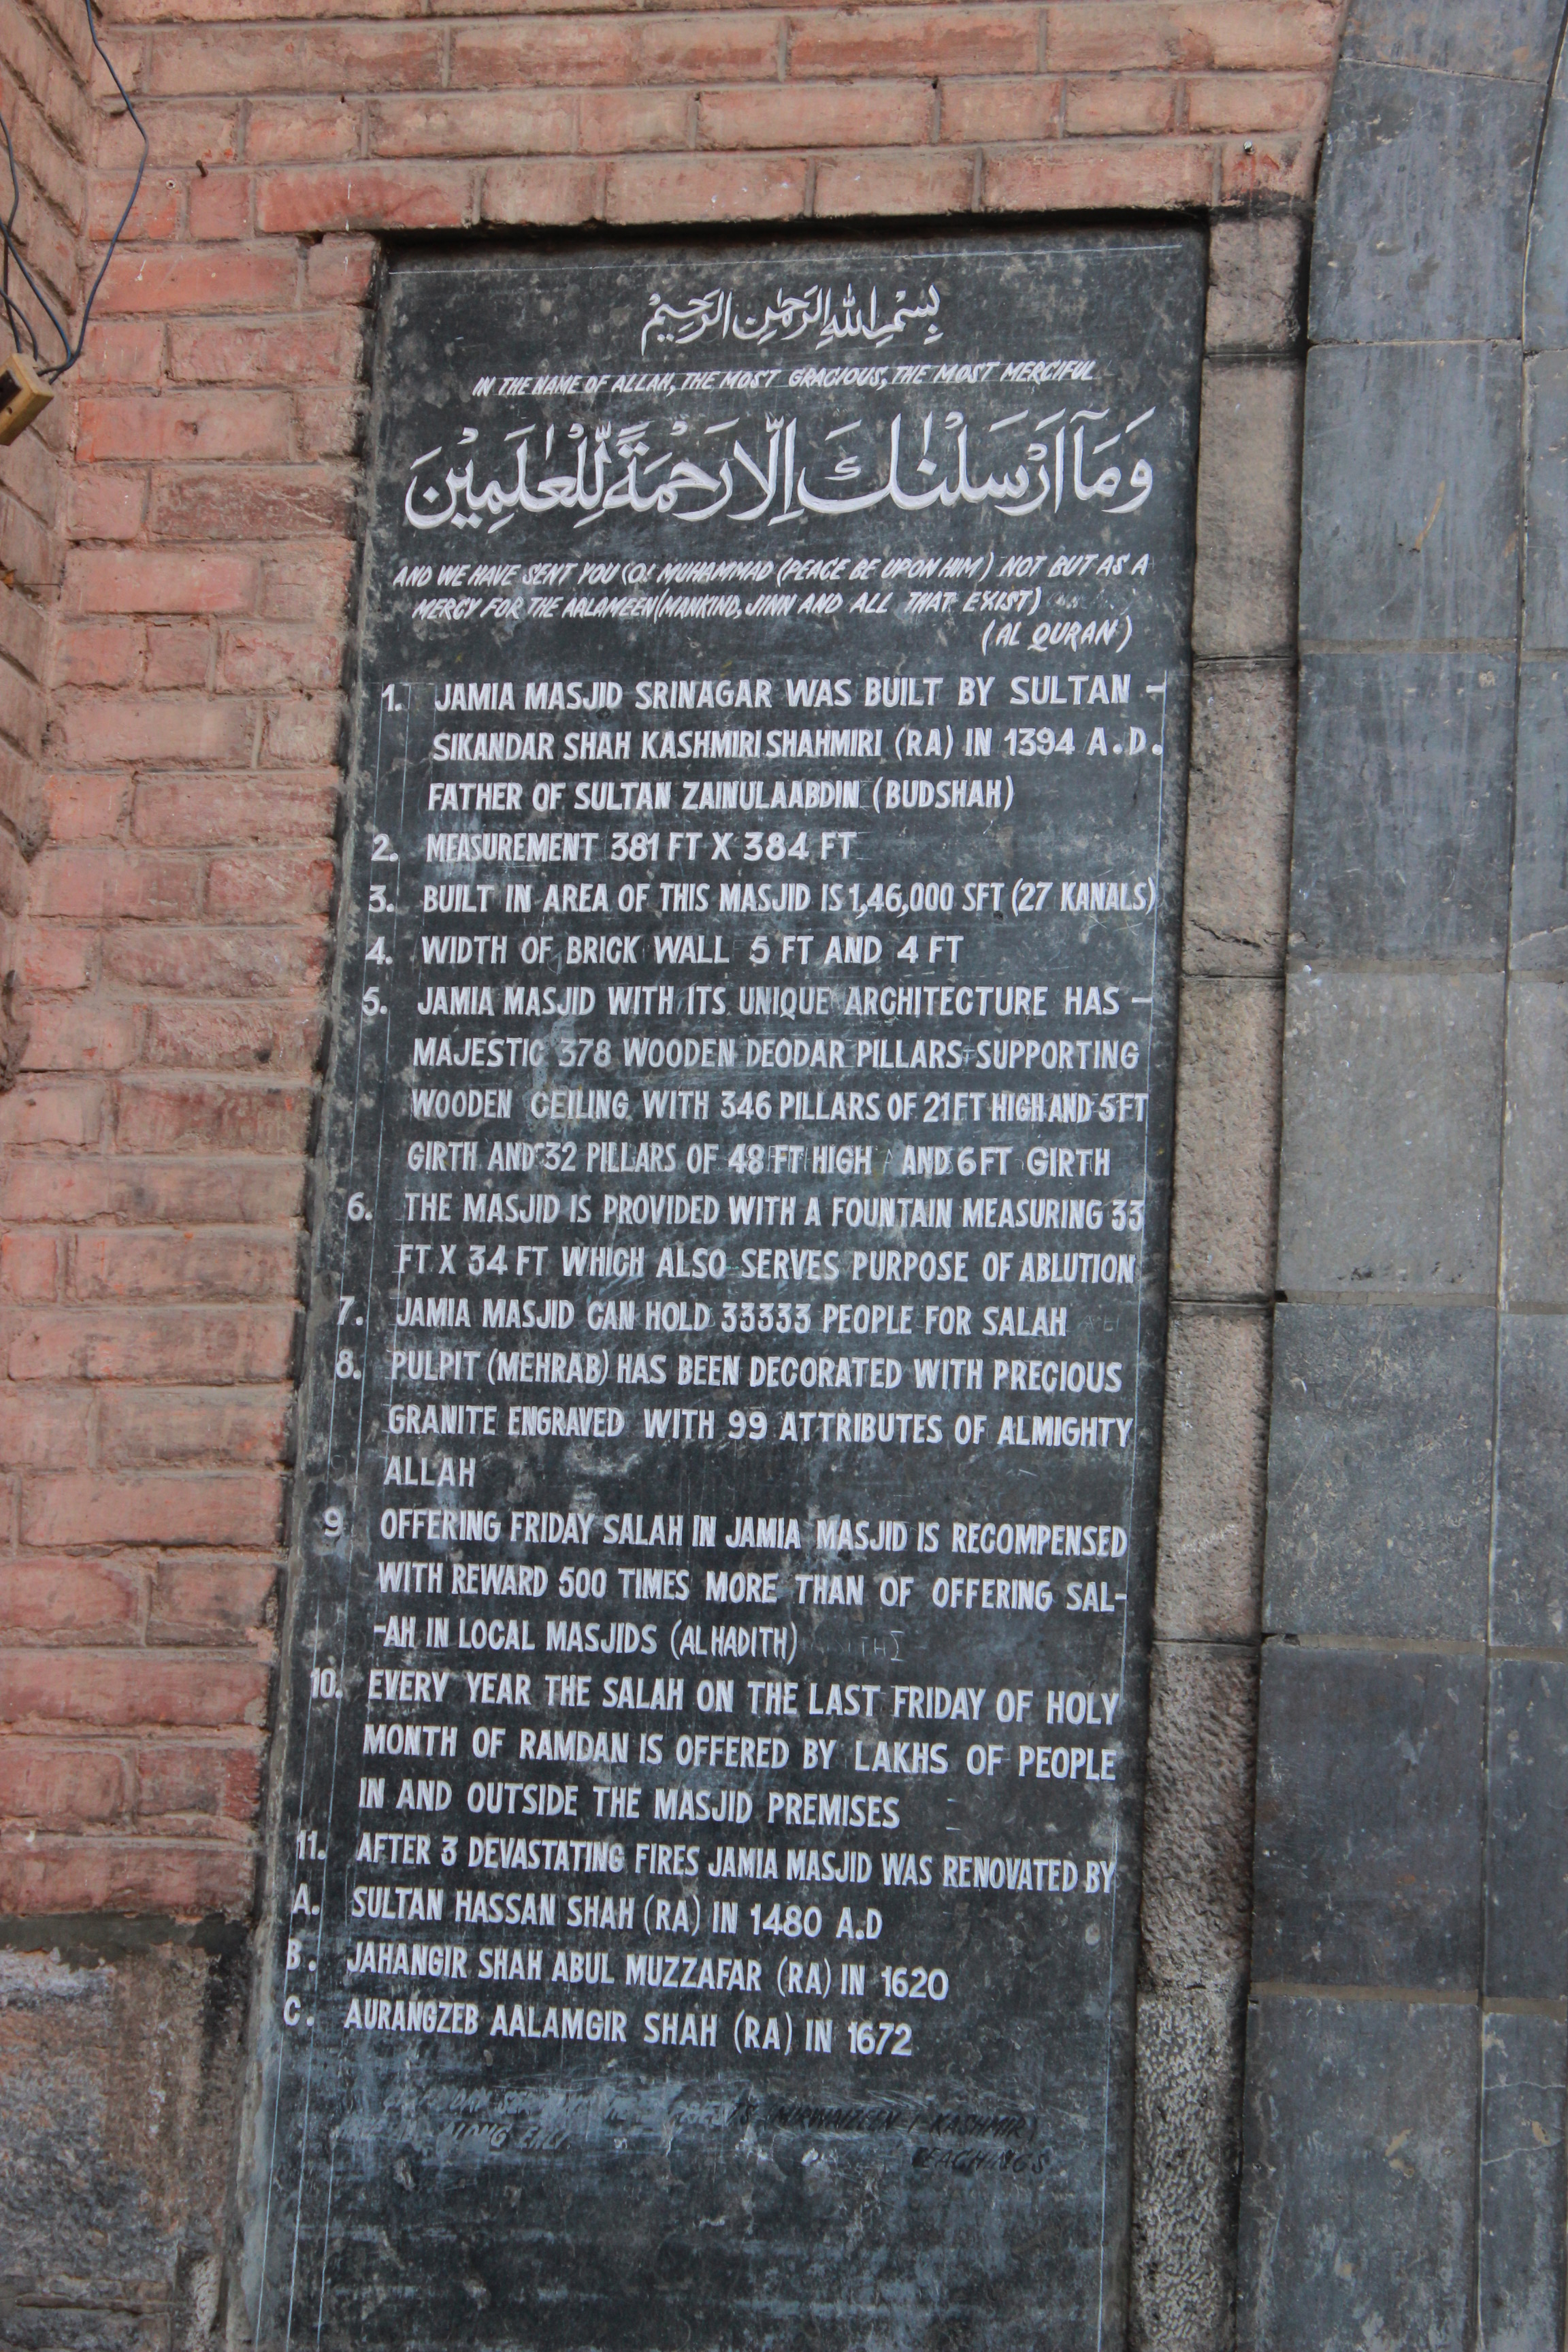 بِسْمِ اللهِ الرَّحْمٰنِ الرَّحِيْمِ
IN THE NAME OF ALLAH, THE MOST GRACIOUS, THE MOST MERCIFUL
وَمَآ اَرْسَلْنٰكَ اِلَّا رَحْمَةً لِّلْعٰلَمِيْنَ
AND WE HAVE SENT YOU (O! MUHAMMAD (PEACE BE UPON HIM) NOT BUT AS A
MERCY FOR THE AALAMEEN (MANKIND, JINN AND ALL THAT EXIST)
(AL QURAN)
1. JAMIA MASJID SRINAGAR WAS BUILT BY SULTAN -
SIKANDAR SHAH KASHMIRI SHAHMIRI (RA) IN 1394 A.D.
FATHER OF SULTAN ZAINULAABDIN (BUDSHAH)
2. MEASUREMENT 381 FT X 384 FT
3. BUILT IN AREA OF THIS MASJID IS 1,46,000 SFT (27 KANALS)
4. WIDTH OF BRICK WALL 5 FT AND 4 FT
5. JAMIA MASJID WITH ITS UNIQUE ARCHITECTURE HAS -
MAJESTIC 378 WOODEN DEODAR PILLARS SUPPORTING
WOODEN CEILING WITH 346 PILLARS OF 21 FT HIGH AND 5 FT
GIRTH AND 32 PILLARS OF 48 FT HIGH AND 6 FT GIRTH
6. THE MASJID IS PROVIDED WITH A FOUNTAIN MEASURING 33
FT X 34 FT WHICH ALSO SERVES PURPOSE OF ABLUTION
7. JAMIA MASJID CAN HOLD 33333 PEOPLE FOR SALAH
8. PULPIT (MEHRAB) HAS BEEN DECORATED WITH PRECIOUS
GRANITE ENGRAVED WITH 99 ATTRIBUTES OF ALMIGHTY
ALLAH
9 OFFERING FRIDAY SALAH IN JAMIA MASJID IS RECOMPENSED
WITH REWARD 500 TIMES MORE THAN OF OFFERING SAL-
-AH IN LOCAL MASJIDS (AL HADITH)
10. EVERY YEAR THE SALAH ON THE LAST FRIDAY OF HOLY
MONTH OF RAMDAN IS OFFERED BY LAKHS OF PEOPLE
IN AND OUTSIDE THE MASJID PREMISES
11. AFTER 3 DEVASTATING FIRES JAMIA MASJID WAS RENOVATED BY
A. SULTAN HASSAN SHAH (RA) IN 1480 A.D
B. JAHANGIR SHAH ABUL MUZZAFAR (RA) IN 1620
C. AURANGZEB AALAMGIR SHAH (RA) IN 1672
MIRWAIZEEN KASHMIR)
TEACHINGS